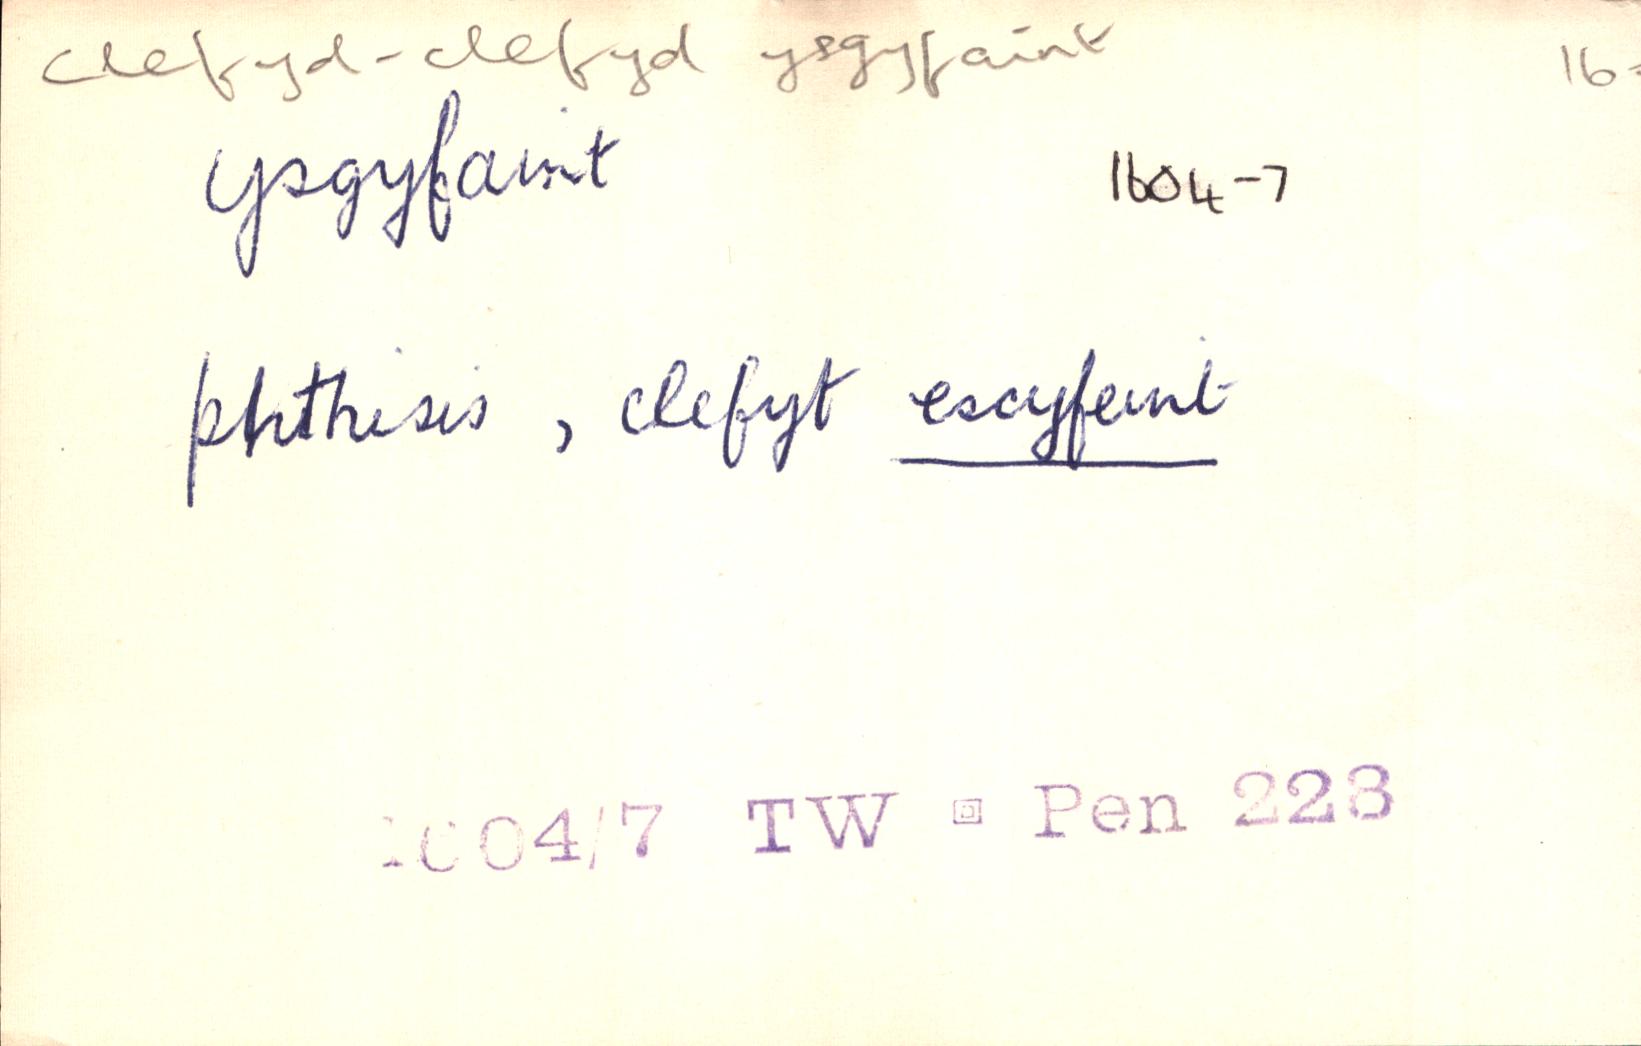 clefyd-clefyd ysgyfaint 16
ysgyfaint 1604-7
phthisis, clefyt escyfeint
1604/7 TW Pen 228